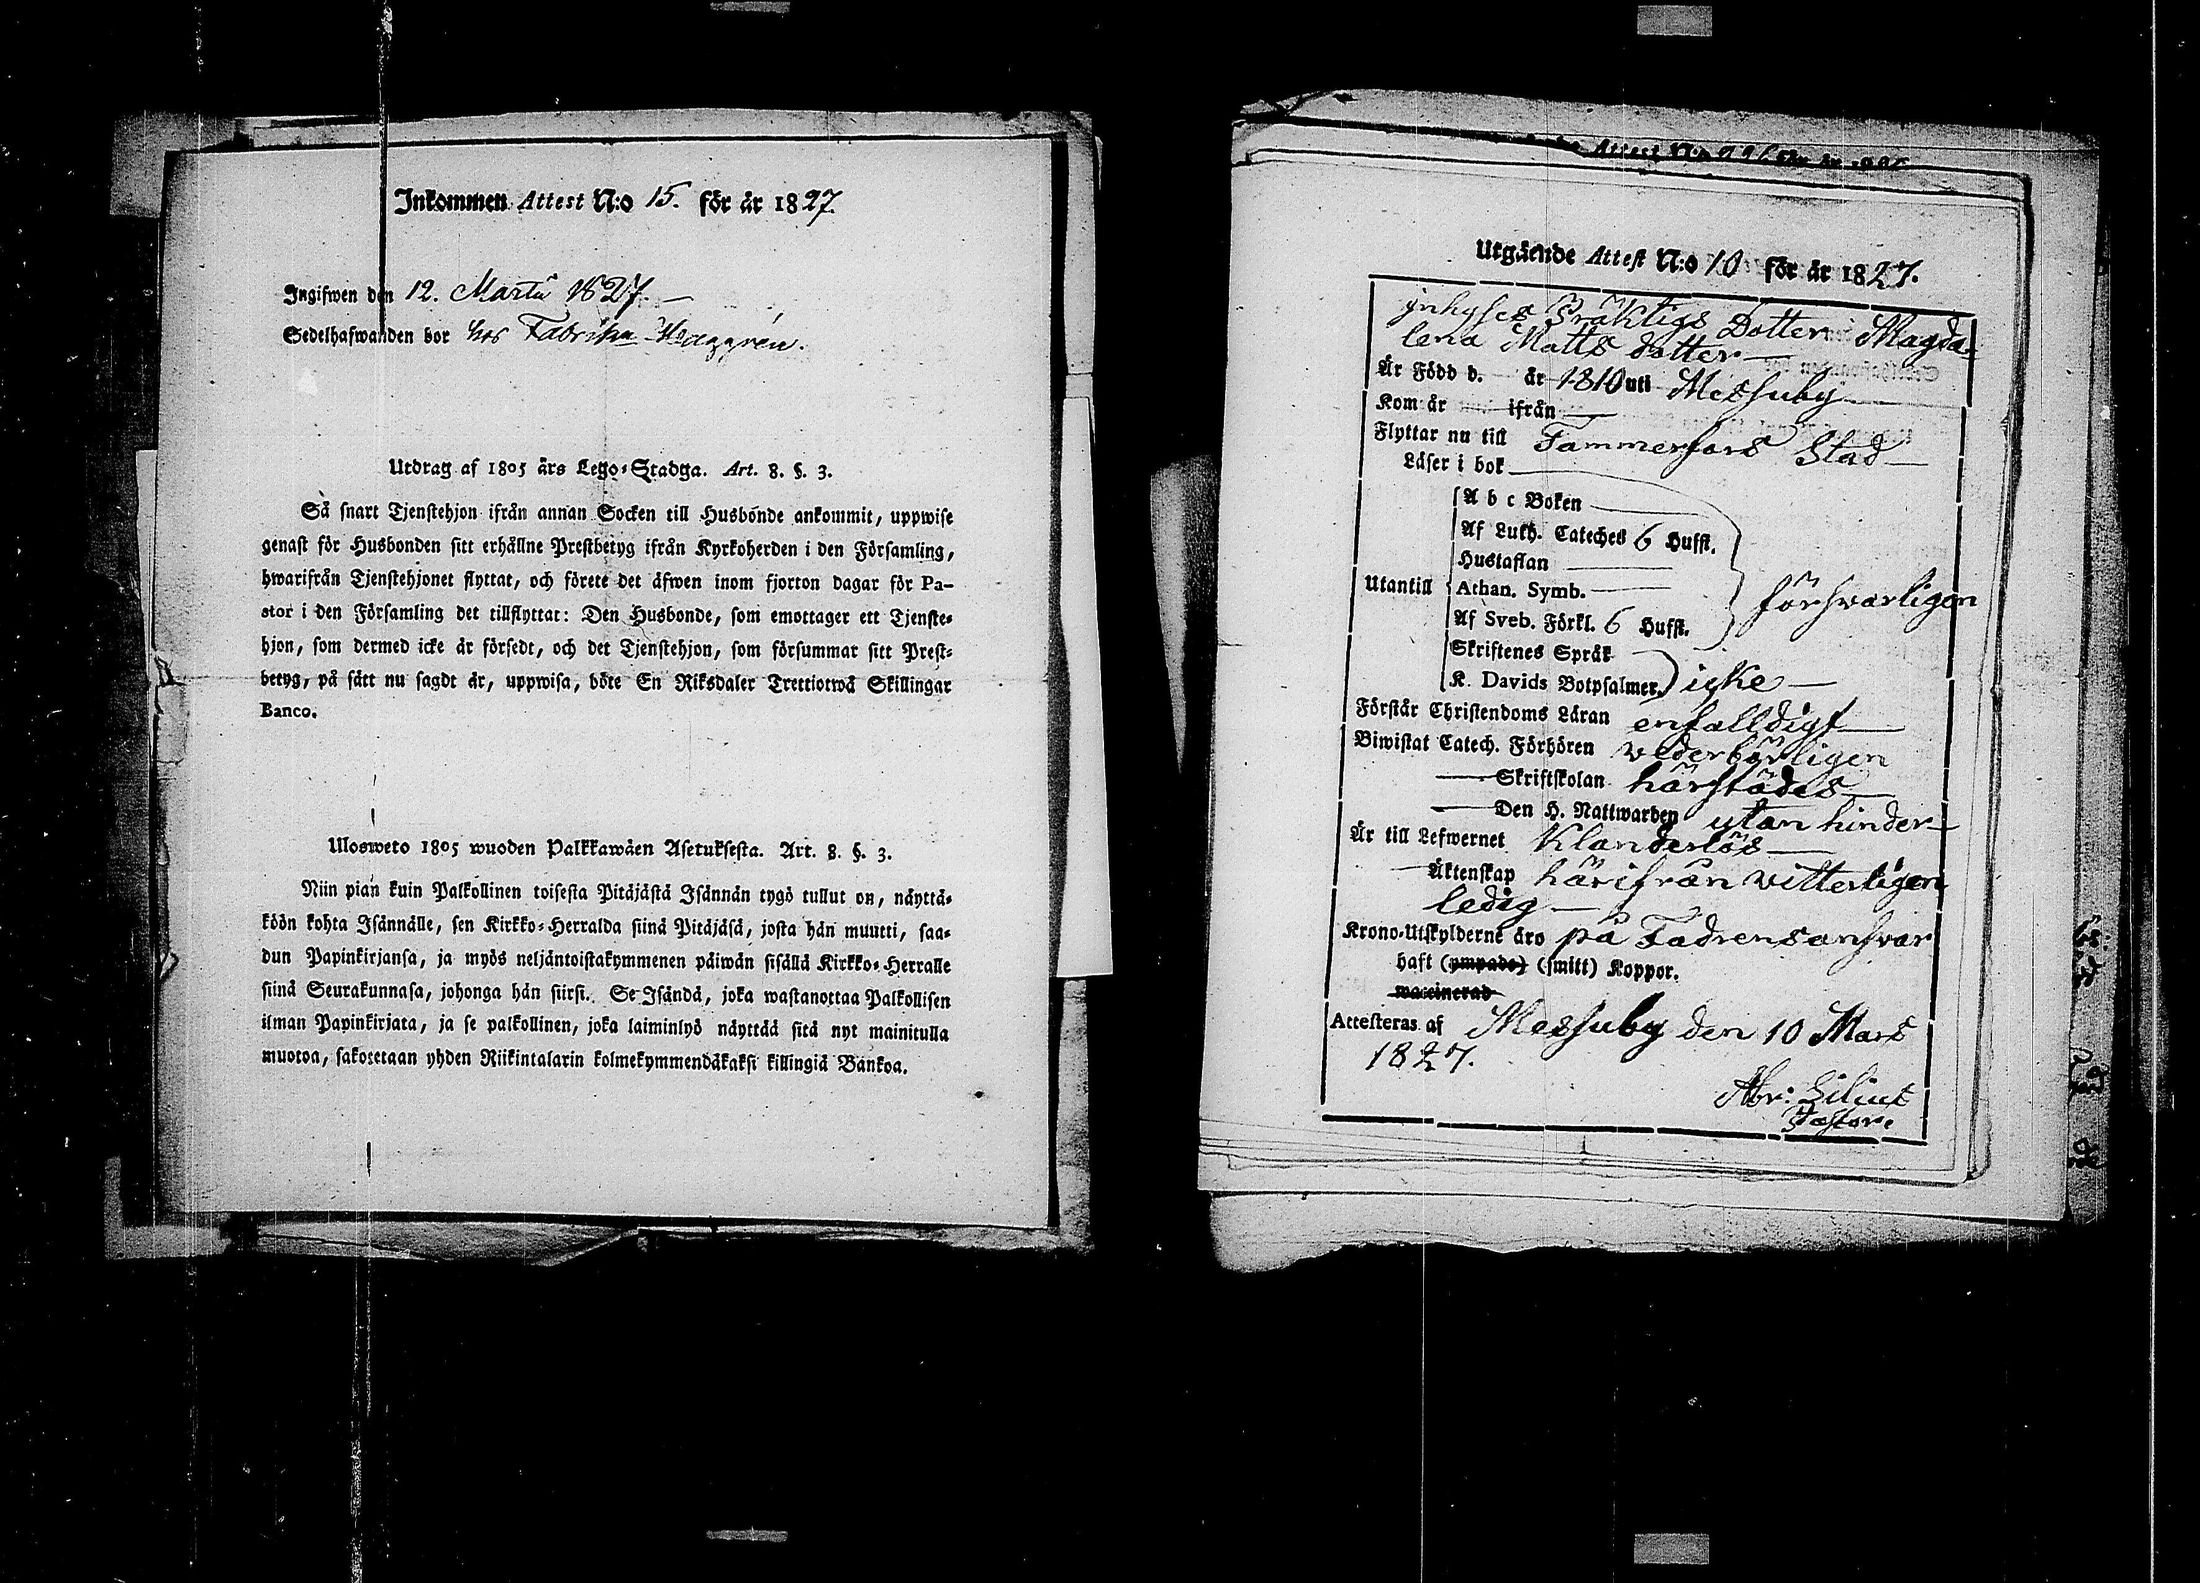 Inkommen Attest N:o 15. för år 1827.
Ingifwen den 12. Martii 1827.
Sedelhafwanden bor hos Fabrikn Haggrén.
Utdrag af 1805 års Lego-Stadga. Art. 8. §. 3.
Så snart Tjenstehjon ifrån annan Socken till Husbonde ankommit, uppwise
genast för Husbonden sitt erhållne Prestbetyg ifrån Kyrkoherden i den Församling,
hwarifrån Tjenstehjonet flyttat, och förete det äfwen inom fjorton dagar för Pa-
stor i den Församling det tillflyttat: Den Husbonde, som emottager ett Tjenste-
hjon, som dermed icke är försedt, och det Tjenstehjon, som försummar sitt Prest-
betyg, på sätt nu sagdt är, uppwisa, böte En Riksdaler Trettiotwå Skillingar
Banco.
Ulosweto 1805 wuoden Palkkawäen Asetuksesta. Art. 8. §. 3.
Niin pian kuin Palkollinen toisesta Pitäjästä Isännän tygö tullut on, näyttä-
köön kohta Isännälle, sen Kirkko-Herralda siinä Pitäjäsä, josta hän muutti, saa-
dun Papinkirjansa, ja myös neljäntoistakymmenen päiwän sisällä Kirkko-Herralle
siinä Seurakunnasa, johonga hän siirsi. Se Isändä, joka wastanottaa Palkollisen
ilman Papinkirjata, ja se palkollinen, joka laiminlyö näyttää sitä nyt mainitulla
muotoa, sakotetaan yhden Riikintalarin kolmekymmendäkaksi killingiä Bankoa.
Utgående Attest N:o 10 för år 1827.
jnhyses Präktigs Dotter Magda-
lena Matts dotter
Är Född d. år 1810 uti Messuby
Kom år ifrån
Flyttar nu till Tammerfors Stad
Läser i bok
A b c Boken
Af Luth. Cateches 6 Hufst.
Hustaflan
Utantill Athan. Symb. försvarligen
Af Sveb. Förkl. 6 Hufst.
Skriftenes Språk
K. Davids Botpsalmer. icke
Förstår Christendoms Läran enfalldigt
Biwistat Catech. Förhören vederbörligen
Skriftskolan härstädes
Den H. Nattwarden utan hinder
Är till Lefwernet Klanderlös
Äktenskap härifrån vitterligen
ledig
Krono-Utskylderne äro på Fadrens ansvar
haft (ympade) (smitt) Koppor.
waccinerad
Attesteras af Messuby den 10 Mars
1827.
Abr: Lilius
Pastor.